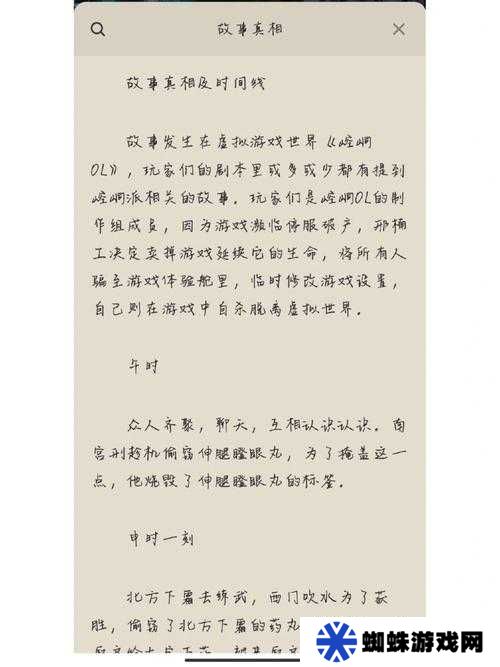 故事真相
故事真相及时间线
故事发生在虚拟游戏世界《崆峒
OL》，玩家们的剧本里或多或少都有提到
崆峒派相关的故事。玩家们是崆峒OL的制
作组成员，因为游戏濒临停服破产，邢桶
工决定卖掉游戏延续它的生命，将所有人
骗至游戏体验舱里，临时修改游戏设置，
自己则在游戏中自杀脱离虚拟世界。
午时
众人齐聚，聊天，互相认识认识。南
宫刑趁机偷窃伸腿瞪眼丸，为了掩盖这一
点，他烧毁了伸腿瞪眼丸的标签。
申时一刻
北方下霜去练武，西门吹水为了获
胜，偷窃了北方下霜的药丸
蜘蛛游戏网